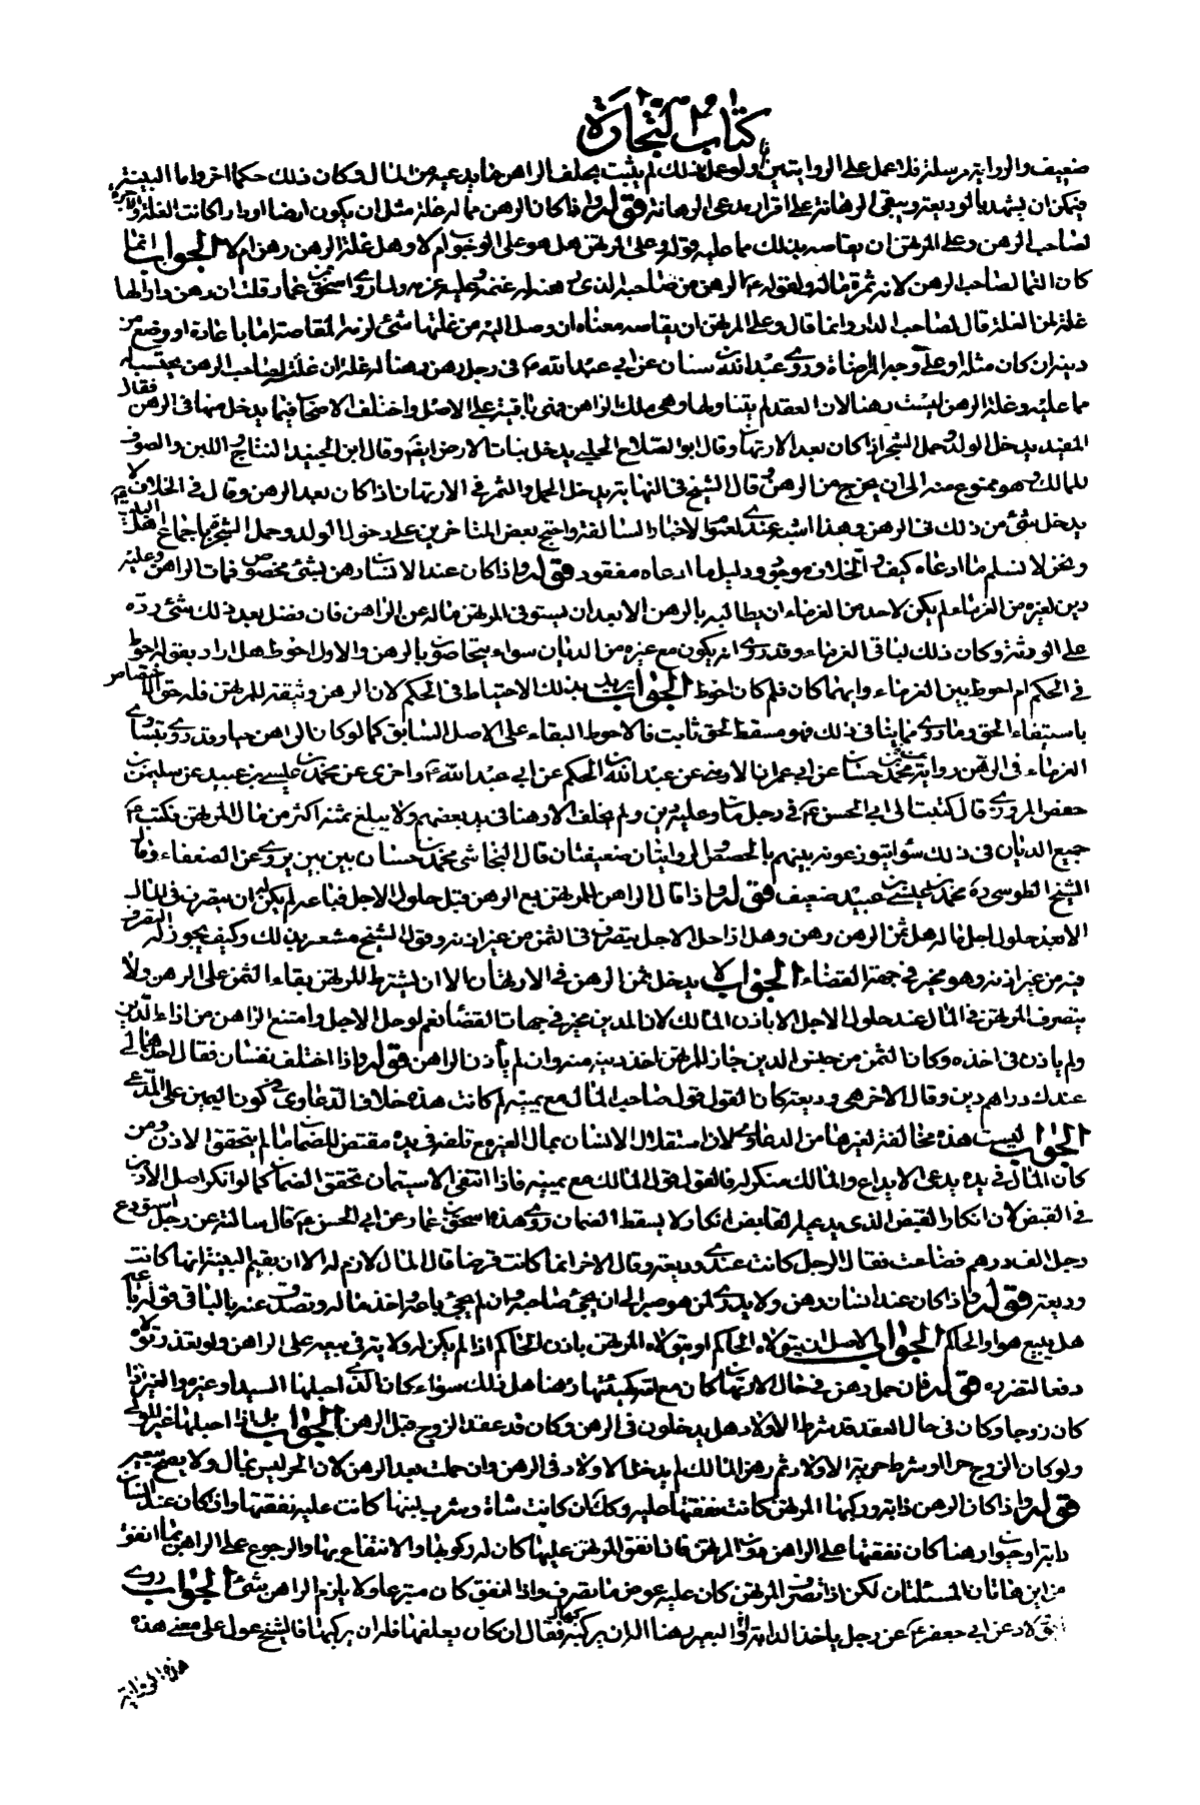 كتاب التجارة
ضعيف والرواية مرسلة فلا عمل على الروايتين ولو عمل بذلك لم يثبت بحلف الراهن ما يدعيه من المال وكان ذلك حكما اخر واما البينة
فيمكن ان يشهد بالوديعة ويبقى الرهانة على اقرار مدعى الرهانة قوله واذا كان الرهن مما له غلة مثل ان يكون ارضا او دارا كانت الغلة والاجرة
لصاحب الرهن وعلى المرتهن ان يقاصه بذلك مما عليه وقوله وعلى المرتهن هل هو على الوجوب ام لا وهل غلة الرهن رهن ام لا الجواب انما
كان النما لصاحب الرهن لانه ثمرة ماله ولقوله ع الرهن من صاحبه الذى رهنه له غنمه وعليه غرمه ولما روى اسحق بن عمار قلت ان رهن دارا لها
غلة لمن الغلة قال لصاحب الدار وانما قال وعلى المرتهن ان يقاصه معناه ان وصل اليه من غلتها شئ لزمه المقاصة اما باعادة او وضع من
دينه ان كان مثله او على وجه المراضاة وروى عبد الله بن سنان عن ابي عبد الله ع في رجل رهن رهنا له غلة ان غلته لصاحب الرهن يحتسب له
مما عليه وغلة الرهن ليست رهنا لان العقد لم يتناولها وهى ملك الراهن فهى باقية على الاصل واختلف الاصحاب فيما يدخل منها فى الرهن فقال
المفيد يدخل الولد وحمل الشجر اذا كان بعد الارتهان وقال ابو الصلاح الحلبي يدخل نبات الارض ايضا وقال ابن الجنيد النتاج واللبن والصوف
للمالك وهو ممنوع عنه الى ان يخرج من الرهن وقال الشيخ في النهاية يدخل الحمل والثمر في الارتهان اذا كان بعد الرهن وقال في الخلاف لا
يدخل شئ من ذلك فى الرهن وهذا اشبه عندي لعموم الاخبار السالفة واحتج بعض المتاخرين على دخول الولد وحمل الشجر باجماع اهل البيت
ونحن لا نسلم ما ادعاه كيف والخلاف موجود ودليل ما ادعاه مفقود قوله واذا كان عند الانسان رهن بشئ مخصوص فمات الراهن وعليه
دين لغيره من الغرماء لم يكن لاحد من الغرماء ان يطالبه بالرهن الا بعد ان يستوفى المرتهن ماله عن الراهن فان فضل بعد ذلك شئ رده
على الورثة وكان ذلك لباقى الغرماء وقد روى انه يكون مع غيره من الديان سواء يتحاصون بالرهن والاول احوط هل اراد بقوله احوط
فى الحكم ام احوط بين الغرماء وايهما كان فلم كان احوط الجواب يريد بذلك الاحتياط فى الحكم لان الرهن وثيقة للمرتهن فله حق الاختصاص
باستيفاء الحق وما روى مما ينافى ذلك فهو مسقط لحق ثابت فالاحوط البقاء على الاصل السابق كما لو كان الراهن حيا وقد روى تساوى
الغرماء فى الرهن رواية محمد بن حسان عن ابي عمران الارمني عن عبد الله بن الحكم عن ابي عبد الله ع واخرى عن محمد بن عيسى بن عبيد عن سليمان بن
حفص المروزى قال كتبت الى ابي الحسن ع في رجل مات وعليه دين ولم يخلف الا رهنا في يد بعضهم ولا يبلغ ثمنه اكثر من مال المرتهن فكتب ع
جميع الديان فى ذلك سواء يتوزعونه بينهم بالحصص والروايتان ضعيفتان قال النجاشى محمد بن حسان بين بين يروى عن الضعفاء وقال
الشيخ الطوسى ره محمد بن عيسى بن عبيد ضعيف قوله واذا قال الراهن للمرتهن بع الرهن قبل حلول الاجل فباعه لم يكن له ان يتصرف فى المال
الا بعد حلول اجل ماله هل ثمن الرهن رهن وهل اذا حل الاجل يتصرف فى الثمن من غير اذنه وقول الشيخ مشعر بذلك وكيف يجوز له التصرف
فيه من غير اذنه وهو مخير في جهة القضاء الجواب لا يدخل ثمن الرهن في الارتهان الا ان يشترط للمرتهن بقاء الثمن على الرهن ولا
يتصرف المرتهن فى المال عند حلول الاجل الا باذن المالك لان المدين مخير فى جهات القضاء نعم لو حل الاجل وامتنع الراهن من اداء الدين
ولم ياذن فى اخذه وكان الثمن من جنس الدين جاز للمرتهن اخذ دينه منه وان لم يأذن الراهن قوله واذا اختلف نفسان فقال احدهما لى
عندك دراهم دين وقال الاخر هى وديعة كان القول قول صاحب المال مع يمينه لم كانت هذه خلاف الدعاوى في كون اليمين على المدعى
الجواب ليست هذه مخالفة لغيرها من الدعاوى لان استقلال الانسان بمال الغير مع تلفه في يده مقتض للضمان ما لم يتحقق الاذن ومن
كان المال في يده يدعى الايداع والمالك منكر له فالقول قول المالك مع يمينه فاذا انتفى الاستيمان تحقق الضمان كما لو انكر اصل الاذن
فى القبض لان انكار القبض الذى يدعيه القابض انكار ولا يسقط الضمان روى هذه اسحق بن عمار عن ابي الحسن ع قال سالته عن رجل استودع
رجلا الف درهم فضاعت فقال الرجل كانت عندى وديعة وقال الاخر انما كانت قرضا قال المال لازم له الا ان يقيم البينة انها كانت
وديعة قوله واذا كان عند انسان رهن ولا يدرى لمن هو صبر الى ان يجئ صاحبه وان لم يجئ باعه واخذ ماله وتصدق عنه بالباقى قوله باعه
هل يبيع هو او الحاكم الجواب الاصل ان يتولاه الحاكم او يتولاه المرتهن باذن الحاكم اذا لم يكن له ولاية في بيعه على الراهن ولو تعذر تولاه
دفعا لتضرره قوله فان حمل رهن في حال الارتهان كان مع امه كهيئتها رهنا هل ذلك سواء كان الذى احبلها السيد او غيره والغير اذا
كان زوجا وكان فى حال العقد قد شرط الاولاد هل يدخلون فى الرهن وكان قد عقد الزوج قبل الرهن الجواب بل اذا احبلها غير المولى
ولو كان الزوج حرا او شرط حرية الاولاد ثم رهن المالك لم يدخل الاولاد فى الرهن وان حملت بعد الرهن لان الحر ليس بمال ولا يصح بيعه
قوله واذا كان الرهن دابة وركبها المرتهن كانت نفقتها عليه وكك ان كانت شاة وشرب لبنها كانت عليه نفقتها واذا كان عند انسان
دابة او حيوان رهنا كان نفقتها على الراهن دون المرتهن فان انفق المرتهن عليها كان له ركوبها والانتفاع بها والرجوع على الراهن بما انفق
من اين هاتان المسئلتان لكن اذا تصرف المرتهن كان عليه عوض ما تصرف واذا انفق كان متبرعا ولا يلزم الراهن شئ الجواب روى
ولاد عن ابي جعفر ع عن رجل ياخذ الدابة او البعير رهنا اله ان يركبه فقال ان كان يعلفها فله ان يركبها فالشيخ عول على معنى هذه
هذه الرواية